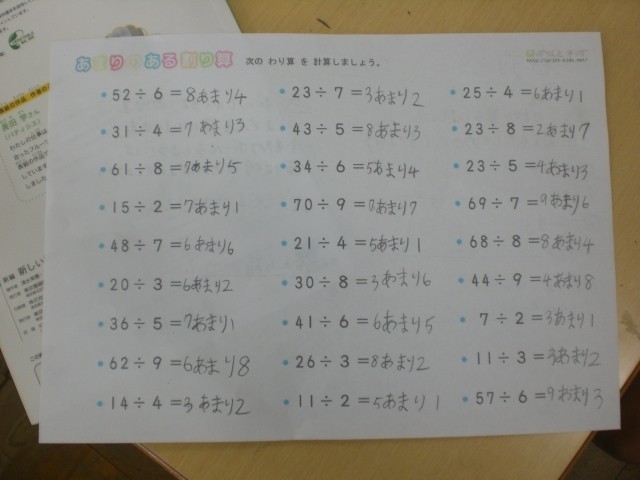 あまりのある割り算 次の わり算 を 計算しましょう。
52÷6=8あまり4 23÷7=3あまり2 25÷4=6あまり1
31÷4=7あまり3 43÷5=8あまり3 23÷8=2あまり7
61÷8=7あまり5 34÷6=5あまり4 23÷5=4あまり3
15÷2=7あまり1 70÷9=7あまり7 69÷7=9あまり6
48÷7=6あまり6 21÷4=5あまり1 68÷8=8あまり4
20÷3=6あまり2 30÷8=3あまり6 44÷9=4あまり8
36÷5=7あまり1 41÷6=6あまり5 7÷2=3あまり1
62÷9=6あまり8 26÷3=8あまり2 11÷3=3あまり2
14÷4=3あまり2 11÷2=5あまり1 57÷6=9あまり3